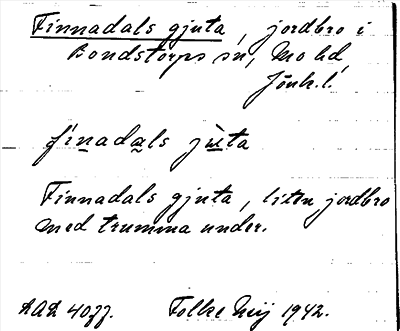 Finnadals gjuta, jordbro i
Bondstorps sn, Mo hd
Jönk.l.
finadals jùta
Finnadals gjuta, liten jordbro
med trumma under.
Folke Meij 1942.